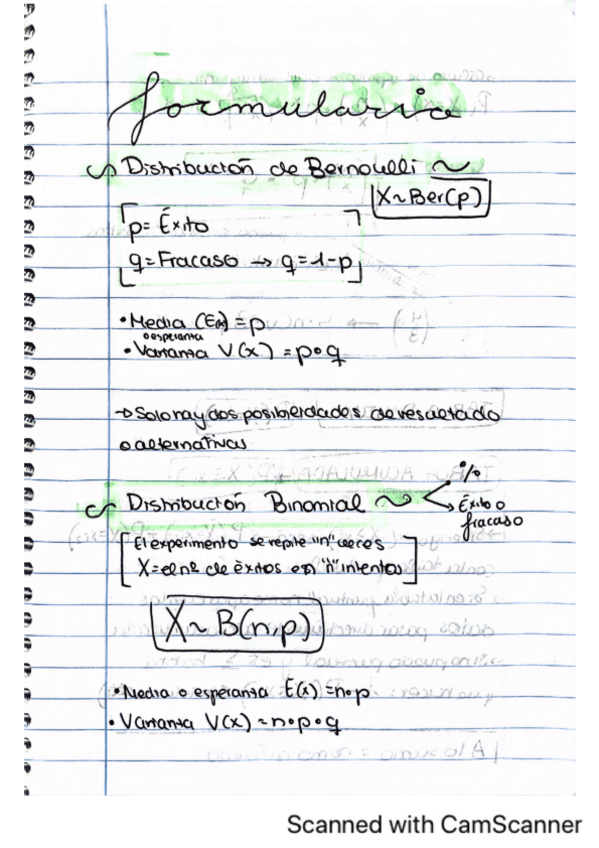 formulario
Distribución de Bernoulli ~
X~Ber(p)
p= Éxito
q=Fracaso → q=1-p
• Media (E(x)) = p
o esperanza
• Varianza V(x) = p•q
→ Solo hay dos posibilidades de resultado
o alternativas
Distribución Binomial ~
%
Éxito o
fracaso
El experimento se repite "n" veces
X=el nº de éxitos en "n" intentos
X~B(n,p)
• Media o esperanza E(x) = n•p
• Varianza V(x) = n•p•q
Scanned with CamScanner